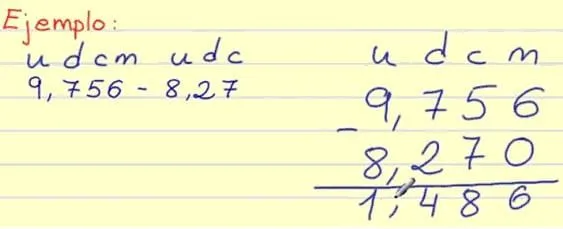 Ejemplo:
u d c m u d c
9,756 - 8,27
u d c m
9,756
- 8,270
1,486